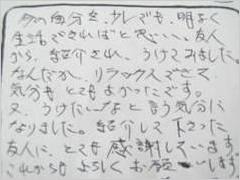 今の自分を、少しでも、明るく
生活できればと思い、友人
から、紹介され、うけてみました。
なんだか、リラックスできて
気分もとてもよかったです。
又、うけたいなと言う気分に
なりました。紹介して下さった
友人に、とても感謝しています。
これからもよろしくお願いします。